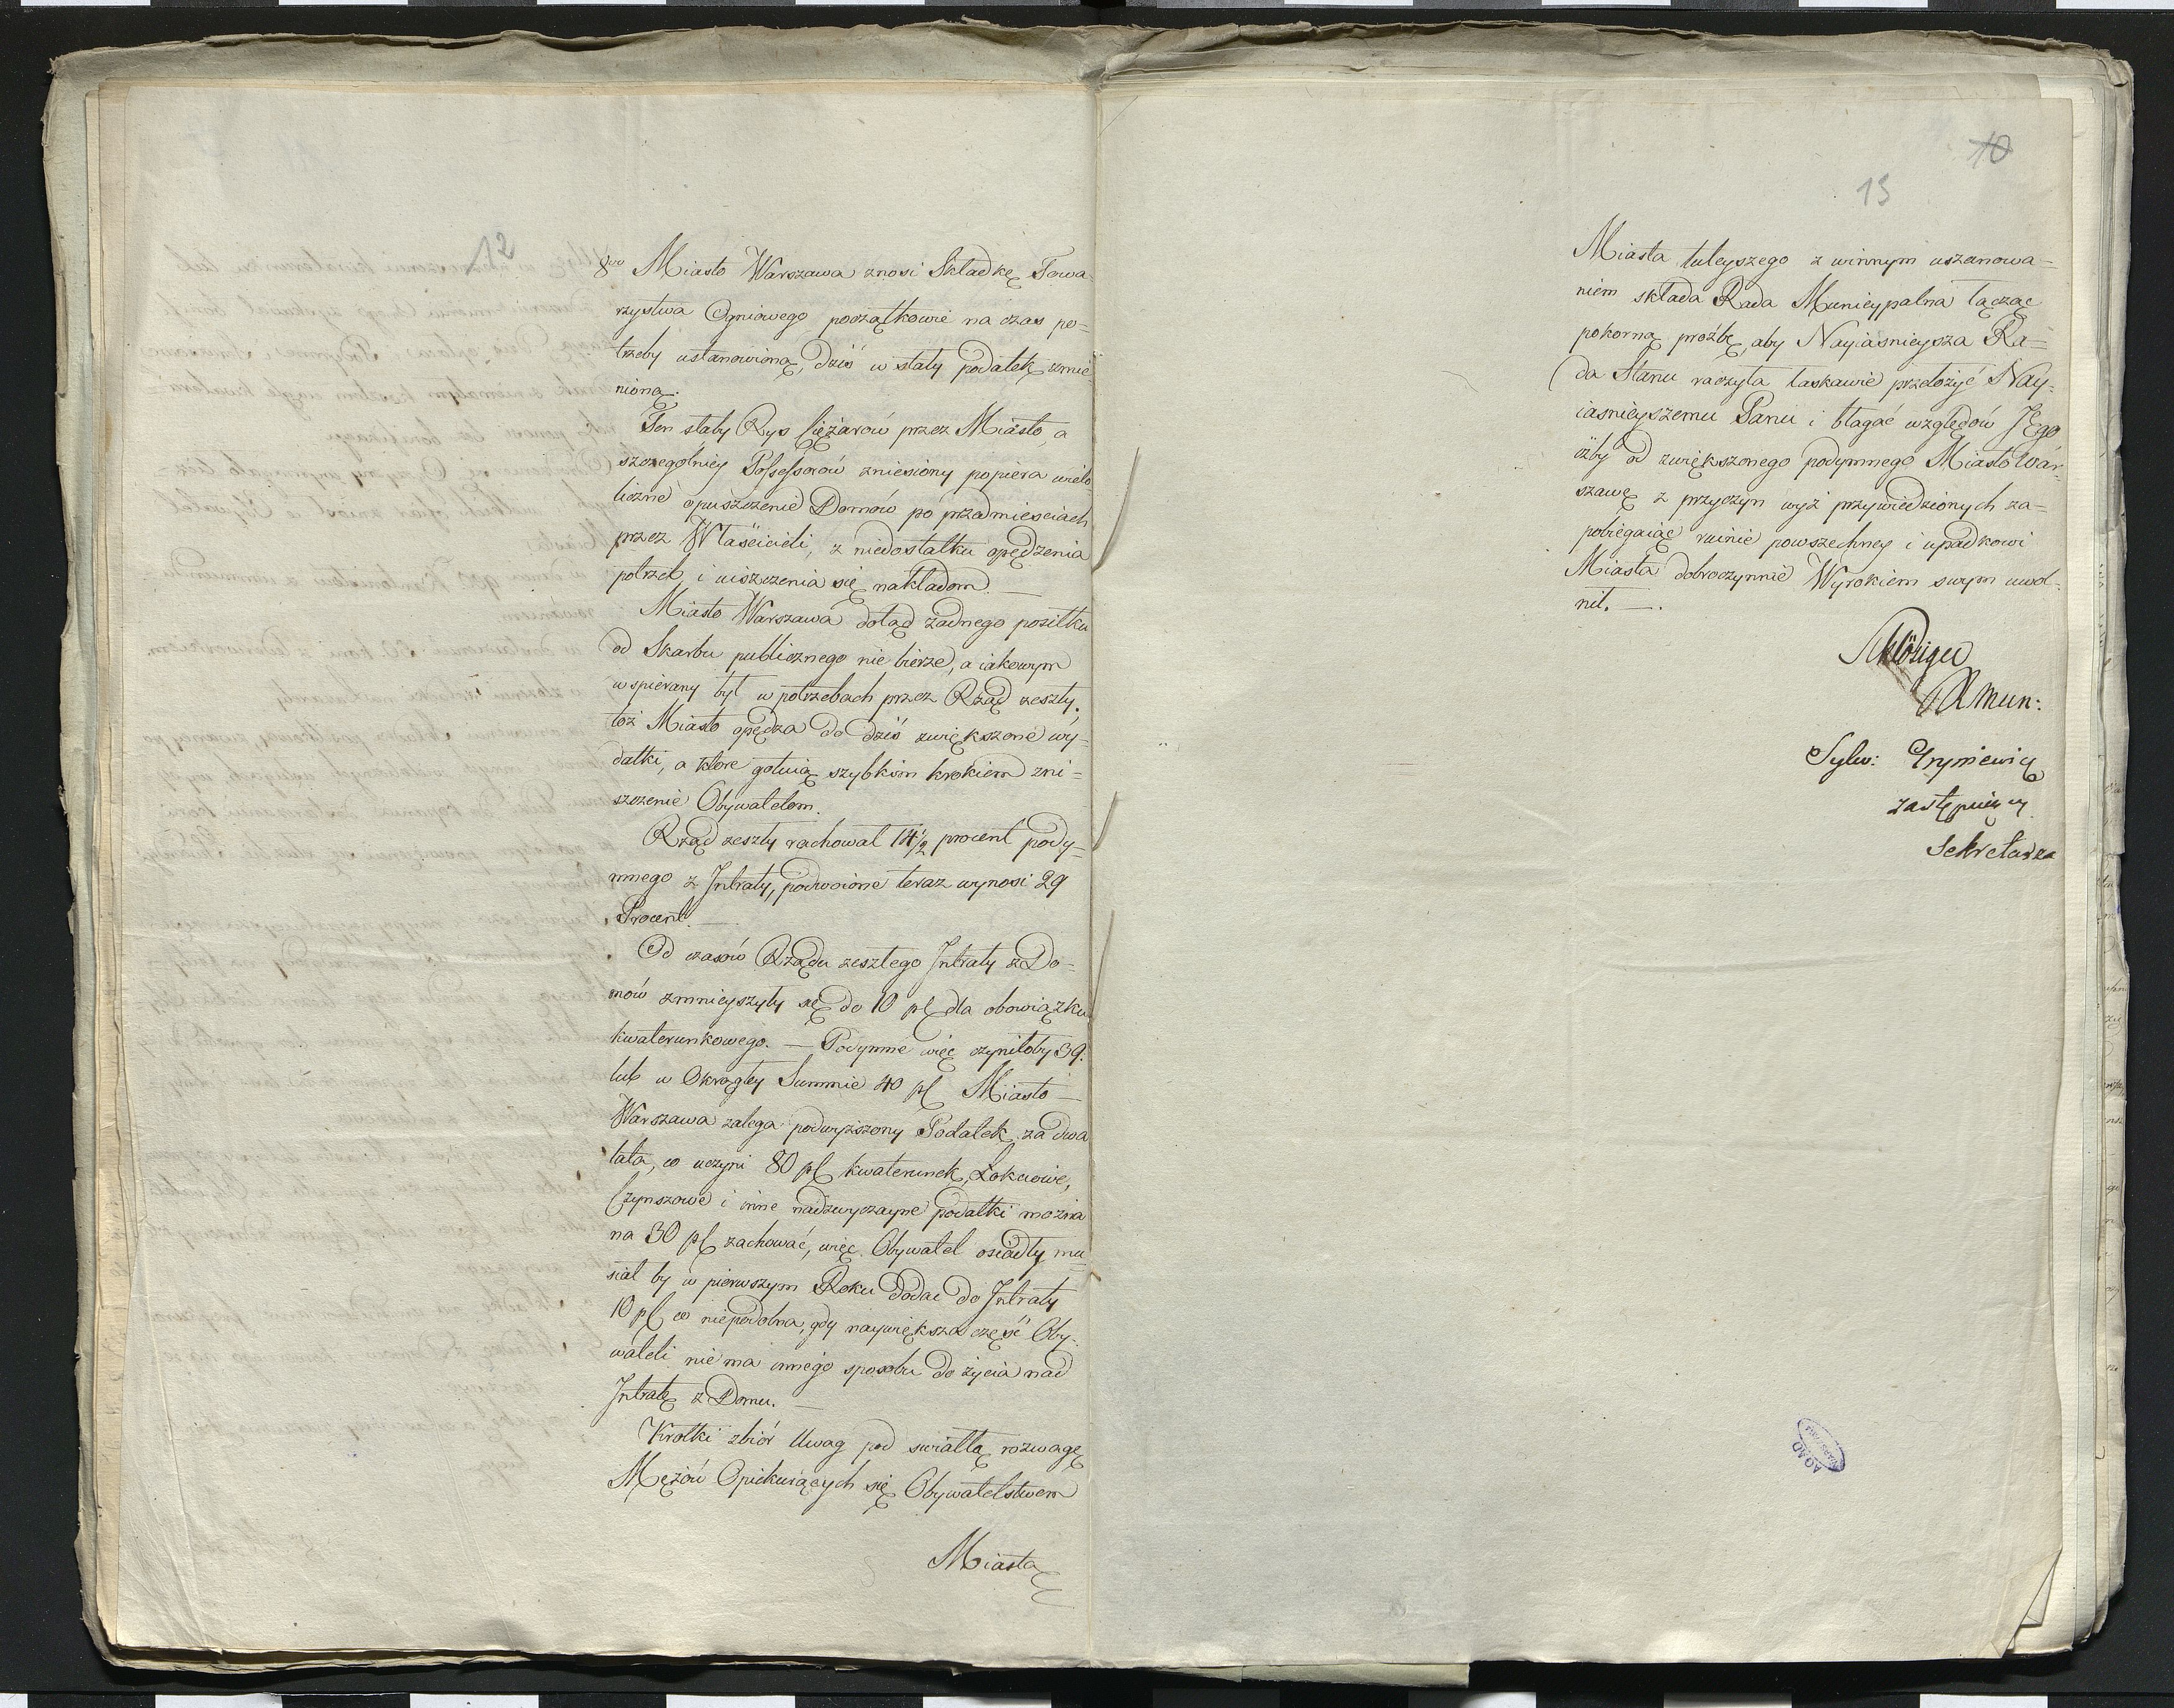 12
8vo Miasto Warszawa znosi Składkę Towa-
rzystwa Ogniowego początkowie na czas po=
trzeby ustanowioną, dziś w stały podatek zmie=
nioną.
Ten słaby Rys Ciężarów przez Miasto, a
szczególniey Possessorów zniesiony popiera wielo=
liczne opuszczenie Domów po przedmiesciach
przez Właścicieli, z niedostatku opędzenia
potrzeb, i uiszczenia się nakładom. —
Miasto Warszawa dotąd żadnego posiłku
od Skarbu publicznego nie bierze, a iakowym
wspierany był w potrzebach przez Rząd zeszły.
toż Miasto opędza do dziś zwiększone wy=
datki, a ktore gotuią szybkim krokiem zni=
szczenie Obywatelom.
Rząd zeszły rachował 14½ procent pody=
mnego z Intraty, podwoione teraz wynosi 29
Procent. —
Od czasów Rządu zeszłego Intraty z Do=
mów zmnieyszyły się do 10 pC dla obowiązku
kwaterunkowego. — Podymne więc czyniłoby 39.
lub w Okrągłey Summie 40 pC Miasto —
Warszawa zalega podwyższony Podatek za dwa
lata, co uczyni 80 pC kwaterunek, Łokciowe,
Czynszowe i inne nadzwyczayne podatki można
na 30 pC rachować, więc Obywatel osiadły mu=
siał by w pierwszym Roku dodac do Intraty
10 pC co niepodobna, gdy naywiększa część Oby=
wateli nie ma innego sposobu do życia nad
Intratę z Domu. —
Krotki zbiór Uwag pod swiatłą rozwagę
Mężów Opiekuiących się Obywatelstwem
Miasta
10
13
Miasta tuteyszego z winnym uszanowa=
niem składa Rada Municypalna łącząc
pokorną proźbę, aby Nayiasnieysza Ra=
da Stanu raczyła łaskawie przełożyć Nay=
iasnieyszemu Panu i błagać względów JEgo
iżby od zwiększonego podymnego Miasto War=
szawę z przyczyn wyż przywiedzionych za=
pobiegaiąc ruinie powszechney i upadkowi
Miasta dobroczynnie Wyrokiem swym uwol=
nił. —.
RMun:
Sylw: Gryniewicz
zastępuiący
Sekretarza
AGAD
WARSZAWA